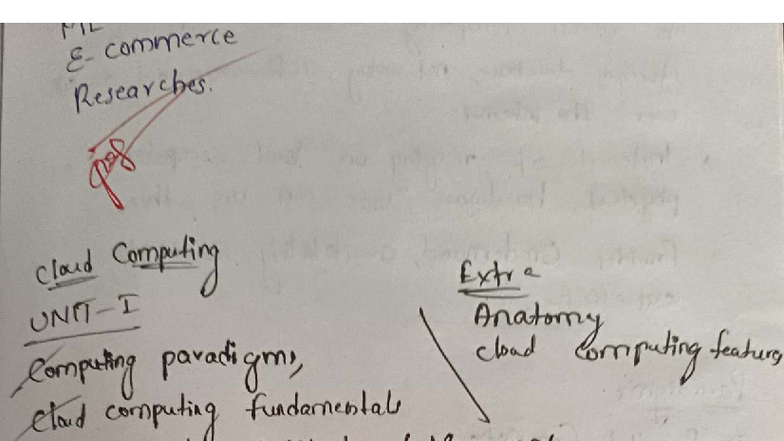 ML
E-commerce
Researches.
Cloud Computing
UNIT-I
Computing paradigms,
Cloud computing fundamentals
Extra
Anatomy
cloud computing features